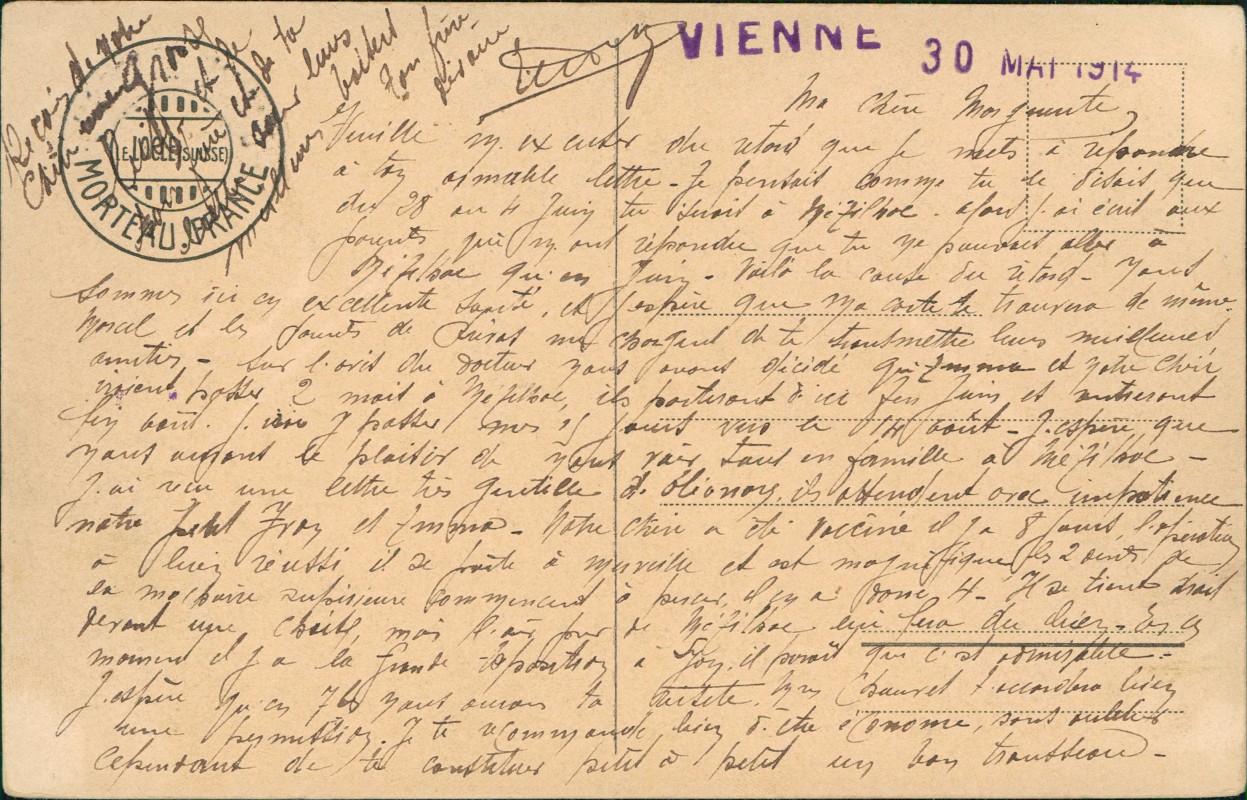 VIENNE 30 MAI 1914
(LE LOCLE (SUISSE)
MORTEAU. FRANCE
Ma chère Marguerite
Veuille m'excuser du retard que je mets à répondre
à ton aimable lettre - Je pensais comme tu le disais que
du 28 au 4 Juin tu serais à alors j'ai écrit aux
parents qui m'ont répondu que tu ne pouvais aller à
qu'en Juin - Voilà la cause du retard - Nous
sommes ici en excellente santé, et j'espère que ma carte te trouvera de même
Marcel et les de me chargent de te transmettre leurs meilleures
amitiés - Sur l'avis du docteur nous avons décidé qu'Emma et notre chéri
iraient passer 2 mois à ils partiront d'ici fin Juin et rentreront
fin août. J'irai y passer mes 15 jours vers le 4 août - J'espère que
nous aurons le plaisir de nous voir tous en famille à
J'ai reçu une lettre très gentille d' Eléonore, ils attendent avec impatience
notre petit et Emma - Notre chéri a été vacciné il y a 8 jours, l'opération
à bien réussi, il se porte à merveille et est magnifique les 2 dents de
la machoire supérieure commencent à percer, il en a donc 4 - Il se tient droit
devant une chaise, mais l'air pur de lui fera du bien - En ce
moment il y a la grande Exposition à Lyon, il paraît que c'est admirable -
J'espère qu'en 7bre nous aurons ta visite, Mme t'accordera bien
une permission. Je te recommande bien d'être économe, sans oublier
cependant de te constituer petit à petit un bon trousseau -
Reçois de notre
chéri une grosse
et de
ainsi que de ta
leurs
meilleurs baisers
Ton frère